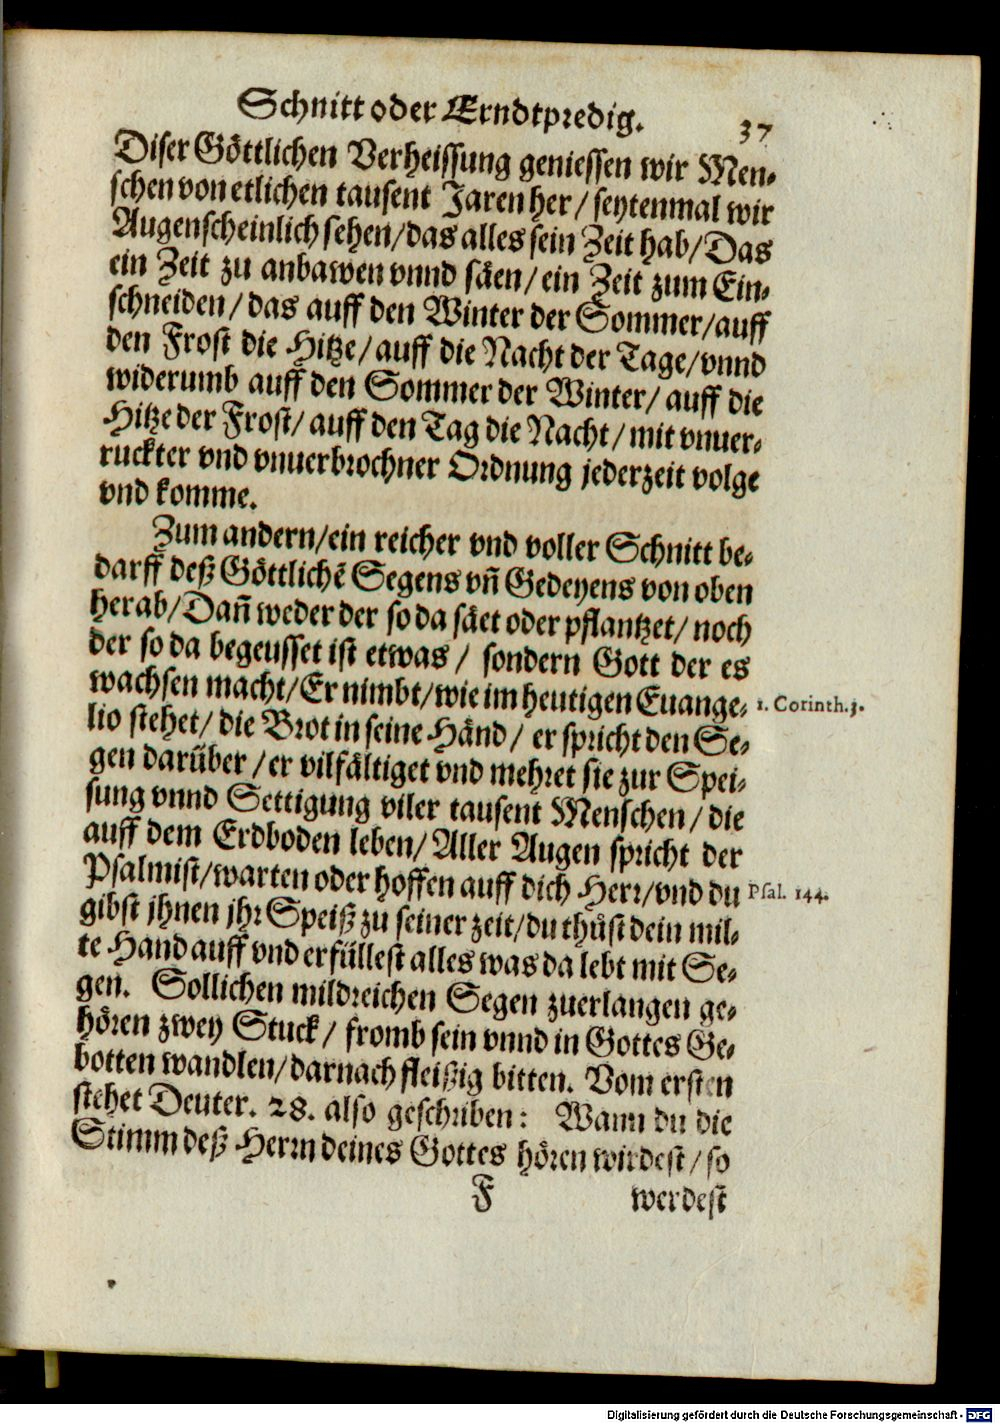 Schnitt oder Erndtpredig. 37
Diser Göttlichen Verheissung geniessen wir Men-
schen von etlichen tausent Jaren her / seytenmal wir
Augenscheinlich sehen / das alles sein Zeit hab / Das
ein Zeit zu anbawen vnnd säen / ein Zeit zum Ein-
schneiden / das auff den Winter der Sommer / auff
den Frost die Hitze / auff die Nacht der Tage / vnnd
widerumb auff den Sommer der Winter / auff die
Hitze der Frost / auff den Tag die Nacht / mit vnuer-
ruckter vnd vnuerbrochner Ordnung jederzeit volge
vnd komme.
Zum andern / ein reicher vnd voller Schnitt be-
darff deß Göttlichẽ Segens vñ Gedeyens von oben
herab / Dañ weder der so da säet oder pflantzet / noch
der so da begeusset ist etwas / sondern Gott der es
wachsen macht / Er nimbt / wie im heutigen Euange- 1. Corinth. 3.
lio stehet / die Brot in seine Händ / er spricht den Se-
gen darüber / er vilfältiget vnd mehret sie zur Spei-
sung vnnd Settigung viler tausent Menschen / die
auff dem Erdboden leben / Aller Augen spricht der
Psalmist / warten oder hoffen auff dich Herr / vnd du Psal. 144.
gibst jhnen jhr Speiß zu seiner zeit / du thůst dein mil-
te Hand auff vnd erfüllest alles was da lebt mit Se-
gen. Sollichen mildreichen Segen zuerlangen ge-
hören zwey Stuck / fromb sein vnnd in Gottes Ge-
botten wandlen / darnach fleißig bitten. Vom ersten
stehet Deuter. 28. also geschriben: Wann du die
Stimm deß Herrn deines Gottes hören wirdest / so
F werdest
Digitalisierung gefördert durch die Deutsche Forschungsgemeinschaft - DFG